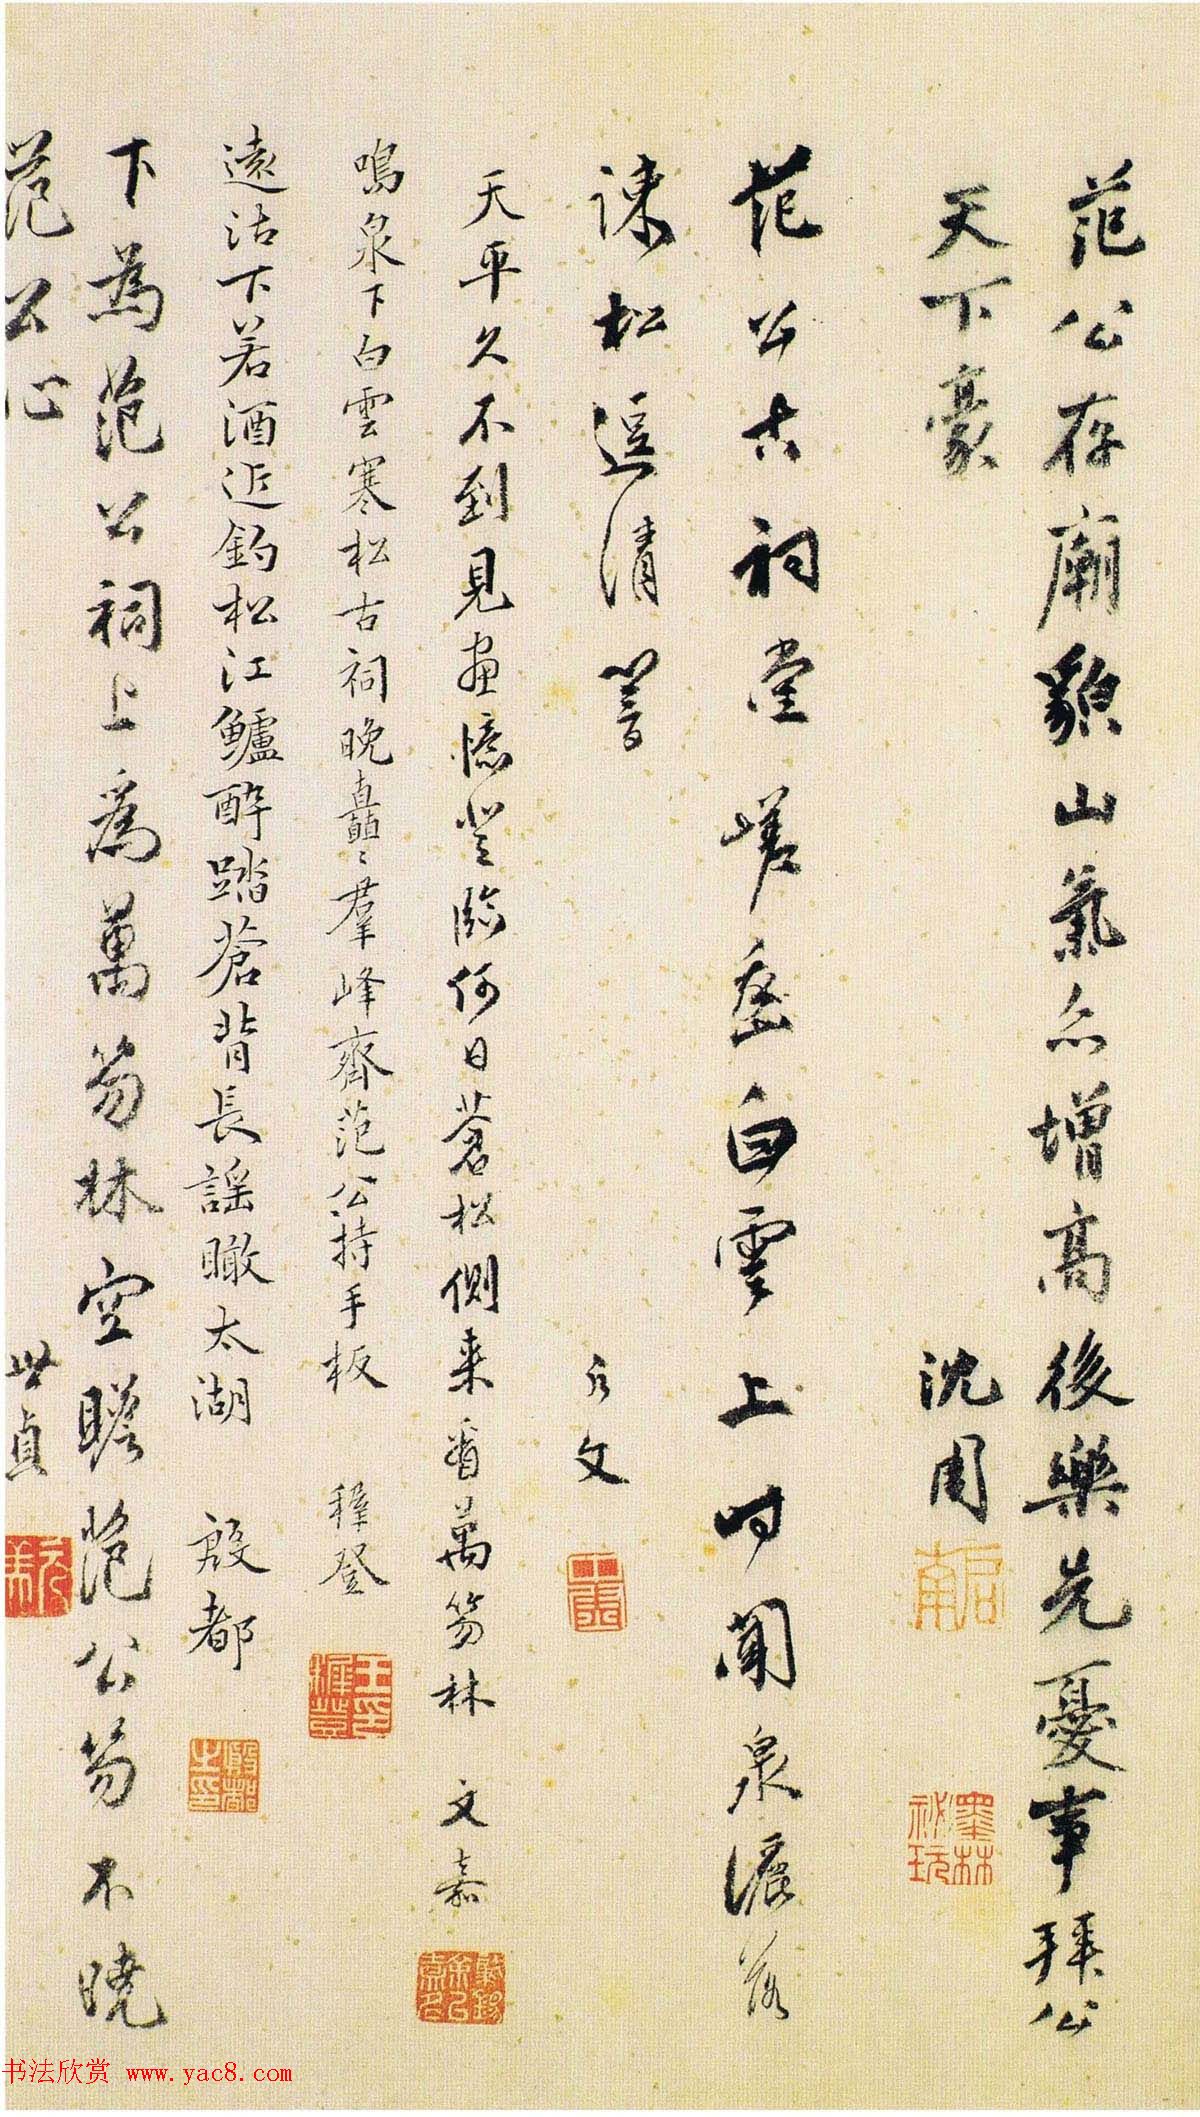 范公存廟貌山氣亦增高後樂先憂事拜公
天下豪
沈周
范公古祠堂嵯峨白雲上時聞泉瀑落
疎松逗清響
彭文
天平久不到見畫憶登臨何日蒼松側来看萬笏林
文嘉
鳴泉下白雲寒松古祠晚矗矗羣峰齊范公持手板
穉登
遠沽下若酒近釣松江鱸醉踏蒼背長謡瞰太湖
殷都
下為范公祠上為萬笏林空瞻范公笏不曉
范公心
世貞
书法欣赏 www.yac8.com